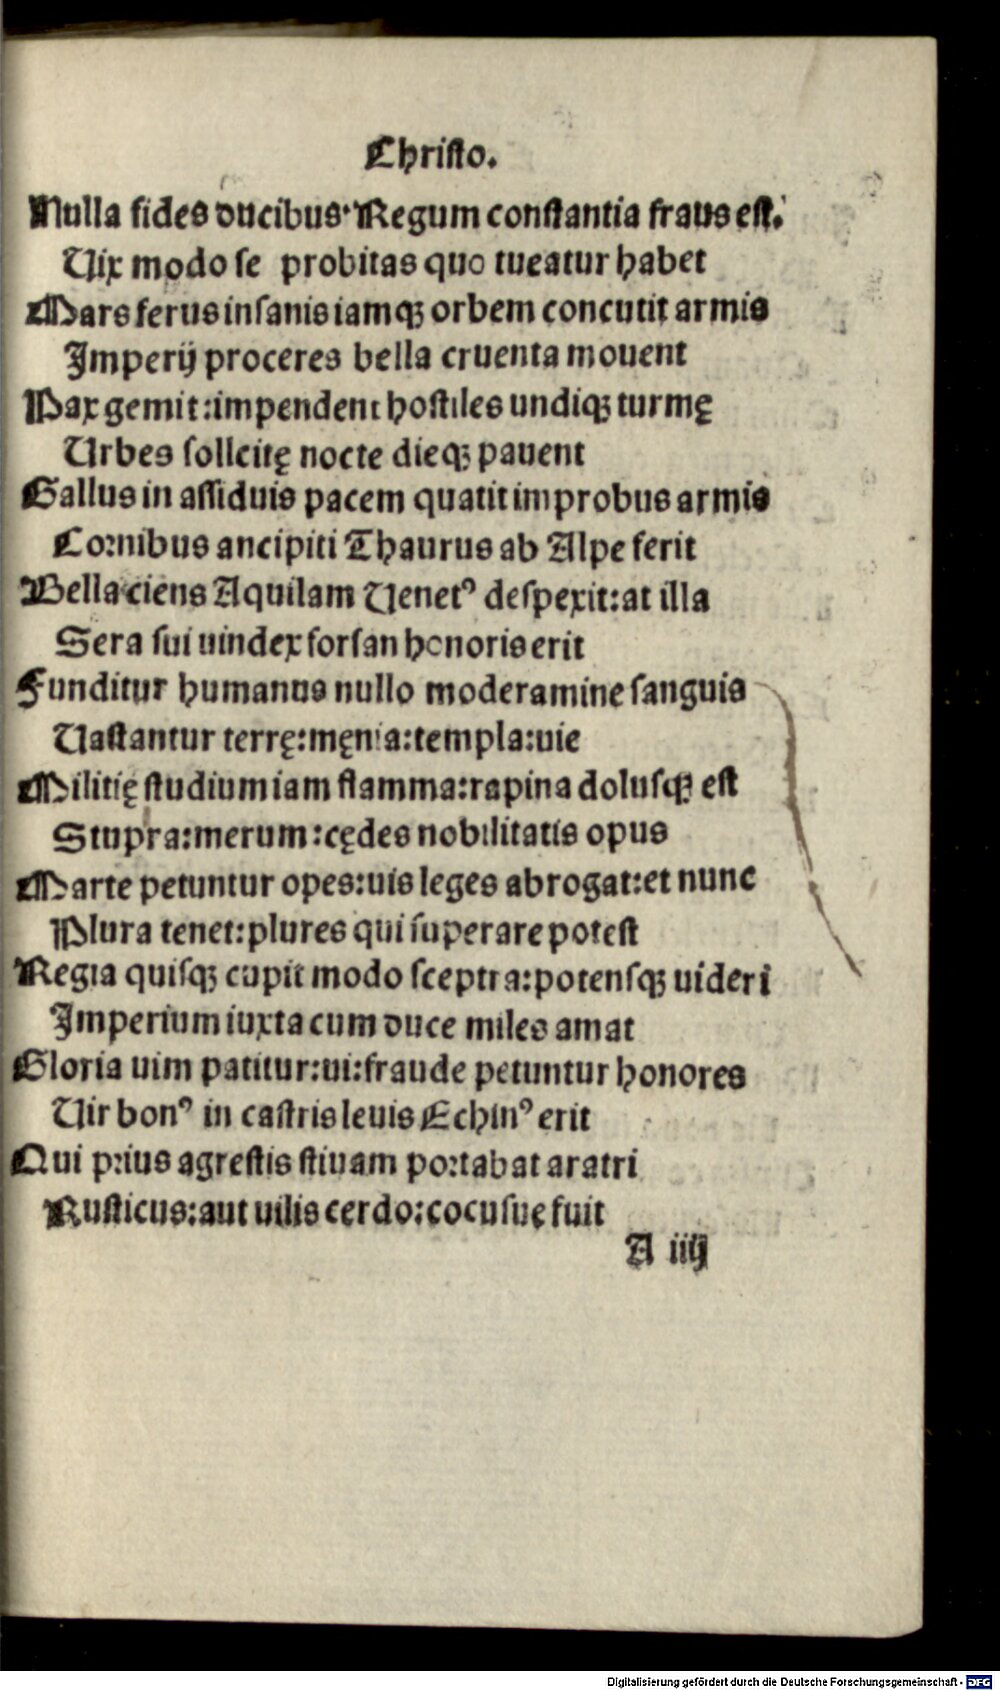 Christo.
Nulla fides ducibus. Regum constantia fraus est.
Uix modo se probitas quo tueatur habet
Mars ferus insanis iamqꝫ orbem concutit armis
Imperij proceres bella cruenta mouent
Pax gemit:impendent hostiles undiqꝫ turmę
Urbes sollcitę nocte dieqꝫ pauent
Gallus in assiduis pacem quatit improbus armis
Cornibus ancipiti Thaurus ab Alpe ferit
Bella ciens Aquilam Uenetꝰ despexit:at illa
Sera sui uindex forsan honoris erit
Funditur humanus nullo moderamine sanguis
Uastantur terrę:męnia:templa:uie
Militię studium iam flamma:rapina dolusqꝫ est
Stupra:merum:cędes nobilitatis opus
Marte petuntur opes:uis leges abrogat:et nunc
Plura tenet:plures qui superare potest
Regia quisqꝫ cupit modo sceptra:potensqꝫ uideri
Imperium iuxta cum duce miles amat
Gloria uim patitur:ui:fraude petuntur honores
Uir bonꝰ in castris leuis Echinꝰ erit
Qui prius agrestis stiuam portabat aratri
Rusticus:aut uilis cerdo:cocusuę fuit
A iiij
Digitalisierung gefördert durch die Deutsche Forschungsgemeinschaft - DFG